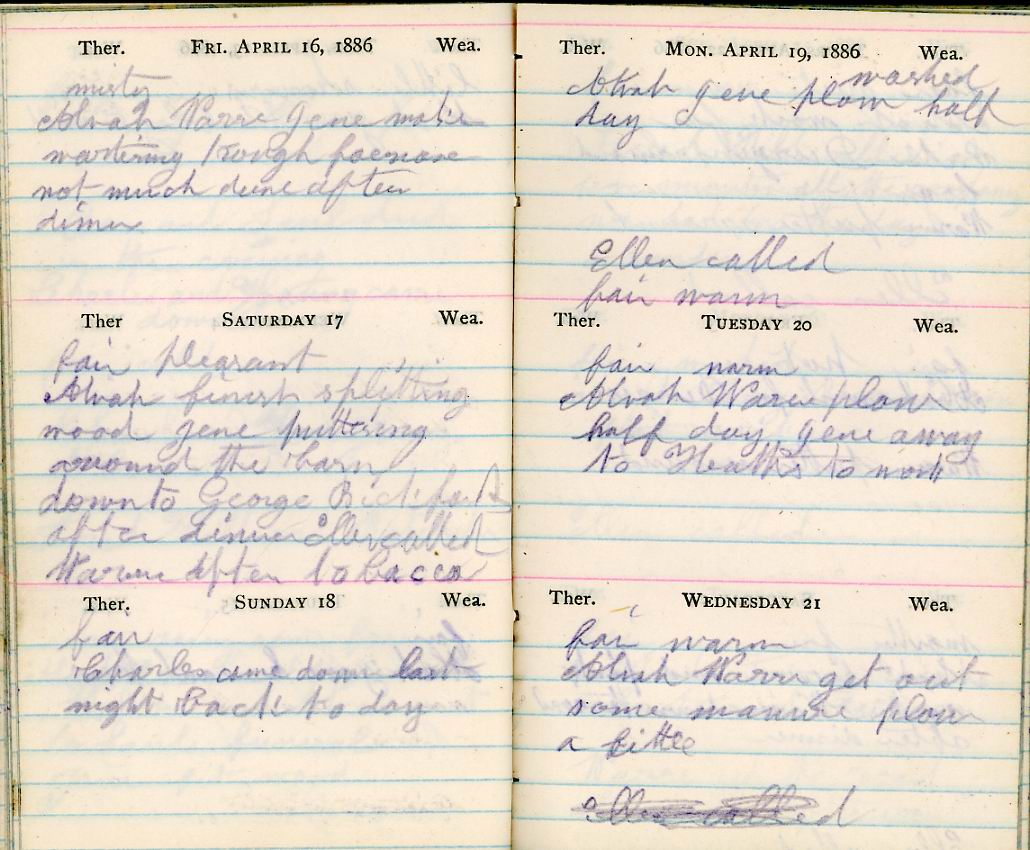 Ther. FRI. APRIL 16, 1886 Wea.
misty
Alvah Warre Gene
not much done after
dinner
Ther SATURDAY 17 Wea.
fair pleasant
Alvah finish splitting
wood gene puttering
around the barn
down to George Bickford
after dinner Ellen called
Warre after tobacco
Ther. SUNDAY 18 Wea.
fair
Charles come down last
night back to day
Ther. MON. APRIL 19, 1886 Wea.
washed
Alvah gene plow half
day
Ellen called
fair warm
Ther. TUESDAY 20 Wea.
fair warm
Alvah Warre plow
half day gene away
to Heaths to work
Ther. WEDNESDAY 21 Wea.
fair warm
Alvah Warre get out
some manure plow
a little
Ellen called